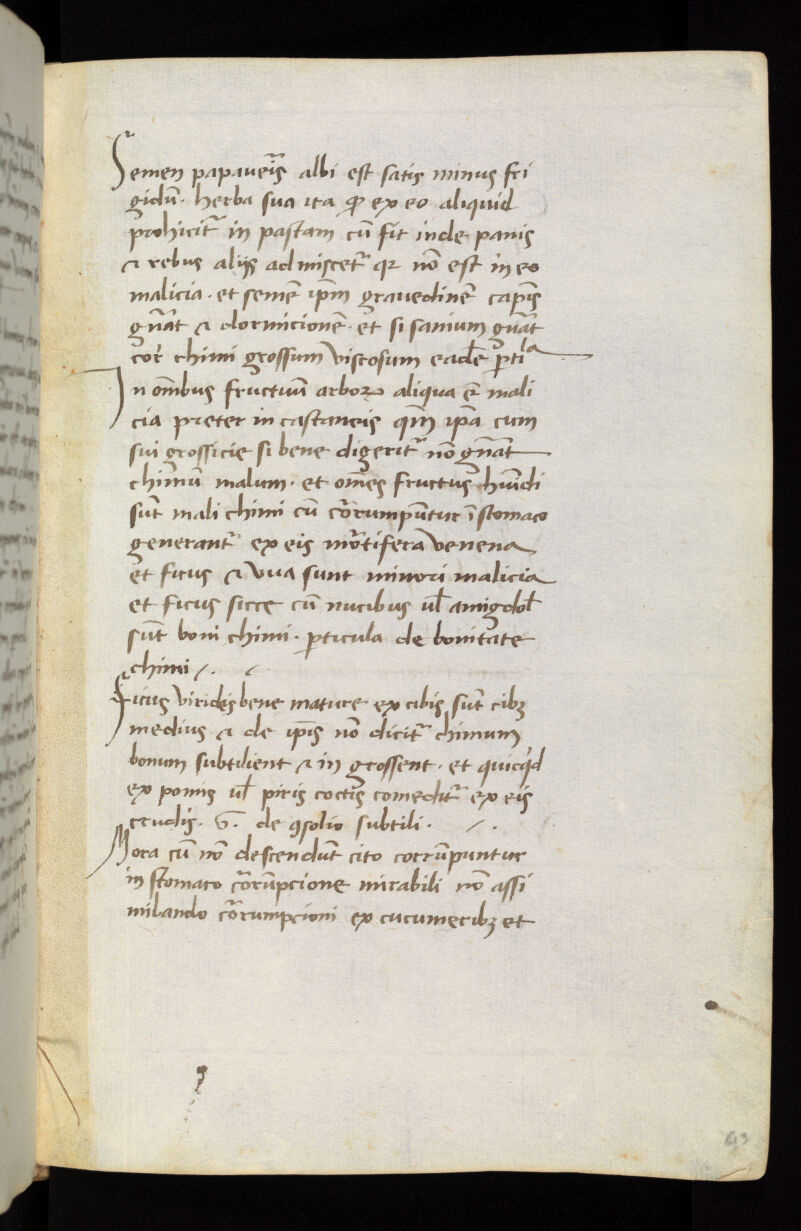 Semen papaueris albi est satis minus fri
gidũ · herba sua ita ꝙ ex eo aliquid
prohicit᷑ in pastam cũ fit inde panis
⁊ rebus alijs admiscet᷑ qꝛ nõ est in eo
malicia · et semẽ ip̃m grauedinẽ capĩs
gñat ⁊ dormicionẽ · et si sanium gñat
cor̃ chimi grossum viscosum eadẽ ꝑtiᷓ
In om̃bus fructuũ arboꝝ aliqua ẽ mali
cia preter in castaneis qm̃ ip̃a cum
sui grossicie si bene digerit᷑ nõ gñat
chimũ malum · et om̃es fructus hũidi
sũt mali chimi cũ cõrumpũtur ĩ stomaco
generant᷑ ex eis mõtifera venena
et ficus ⁊ vua sunt minori malicia
et ficus sicce cũ nucibus ul̃ amigdol̃
sũt boni chimi · ꝑticula de bonitate
chimi
Ficus viridẽs bene mature ex cibis sũt cibꝫ
medius ⁊ de ip̃is nõ dicit᷑ chimum
bonum subtilient ⁊ in grossent · et quicq̇d
ex pomis ul̃ piris coctis comedit᷑ ex eis
crudis · G̃ · de ꝯsolio subtili ·
Mora cũ nõ descendũt cito corrũpuntur
in stomaco cõrũpcione mirabili nõ assi
milando cõrumpcioni ex cucumeribꝫ et
63